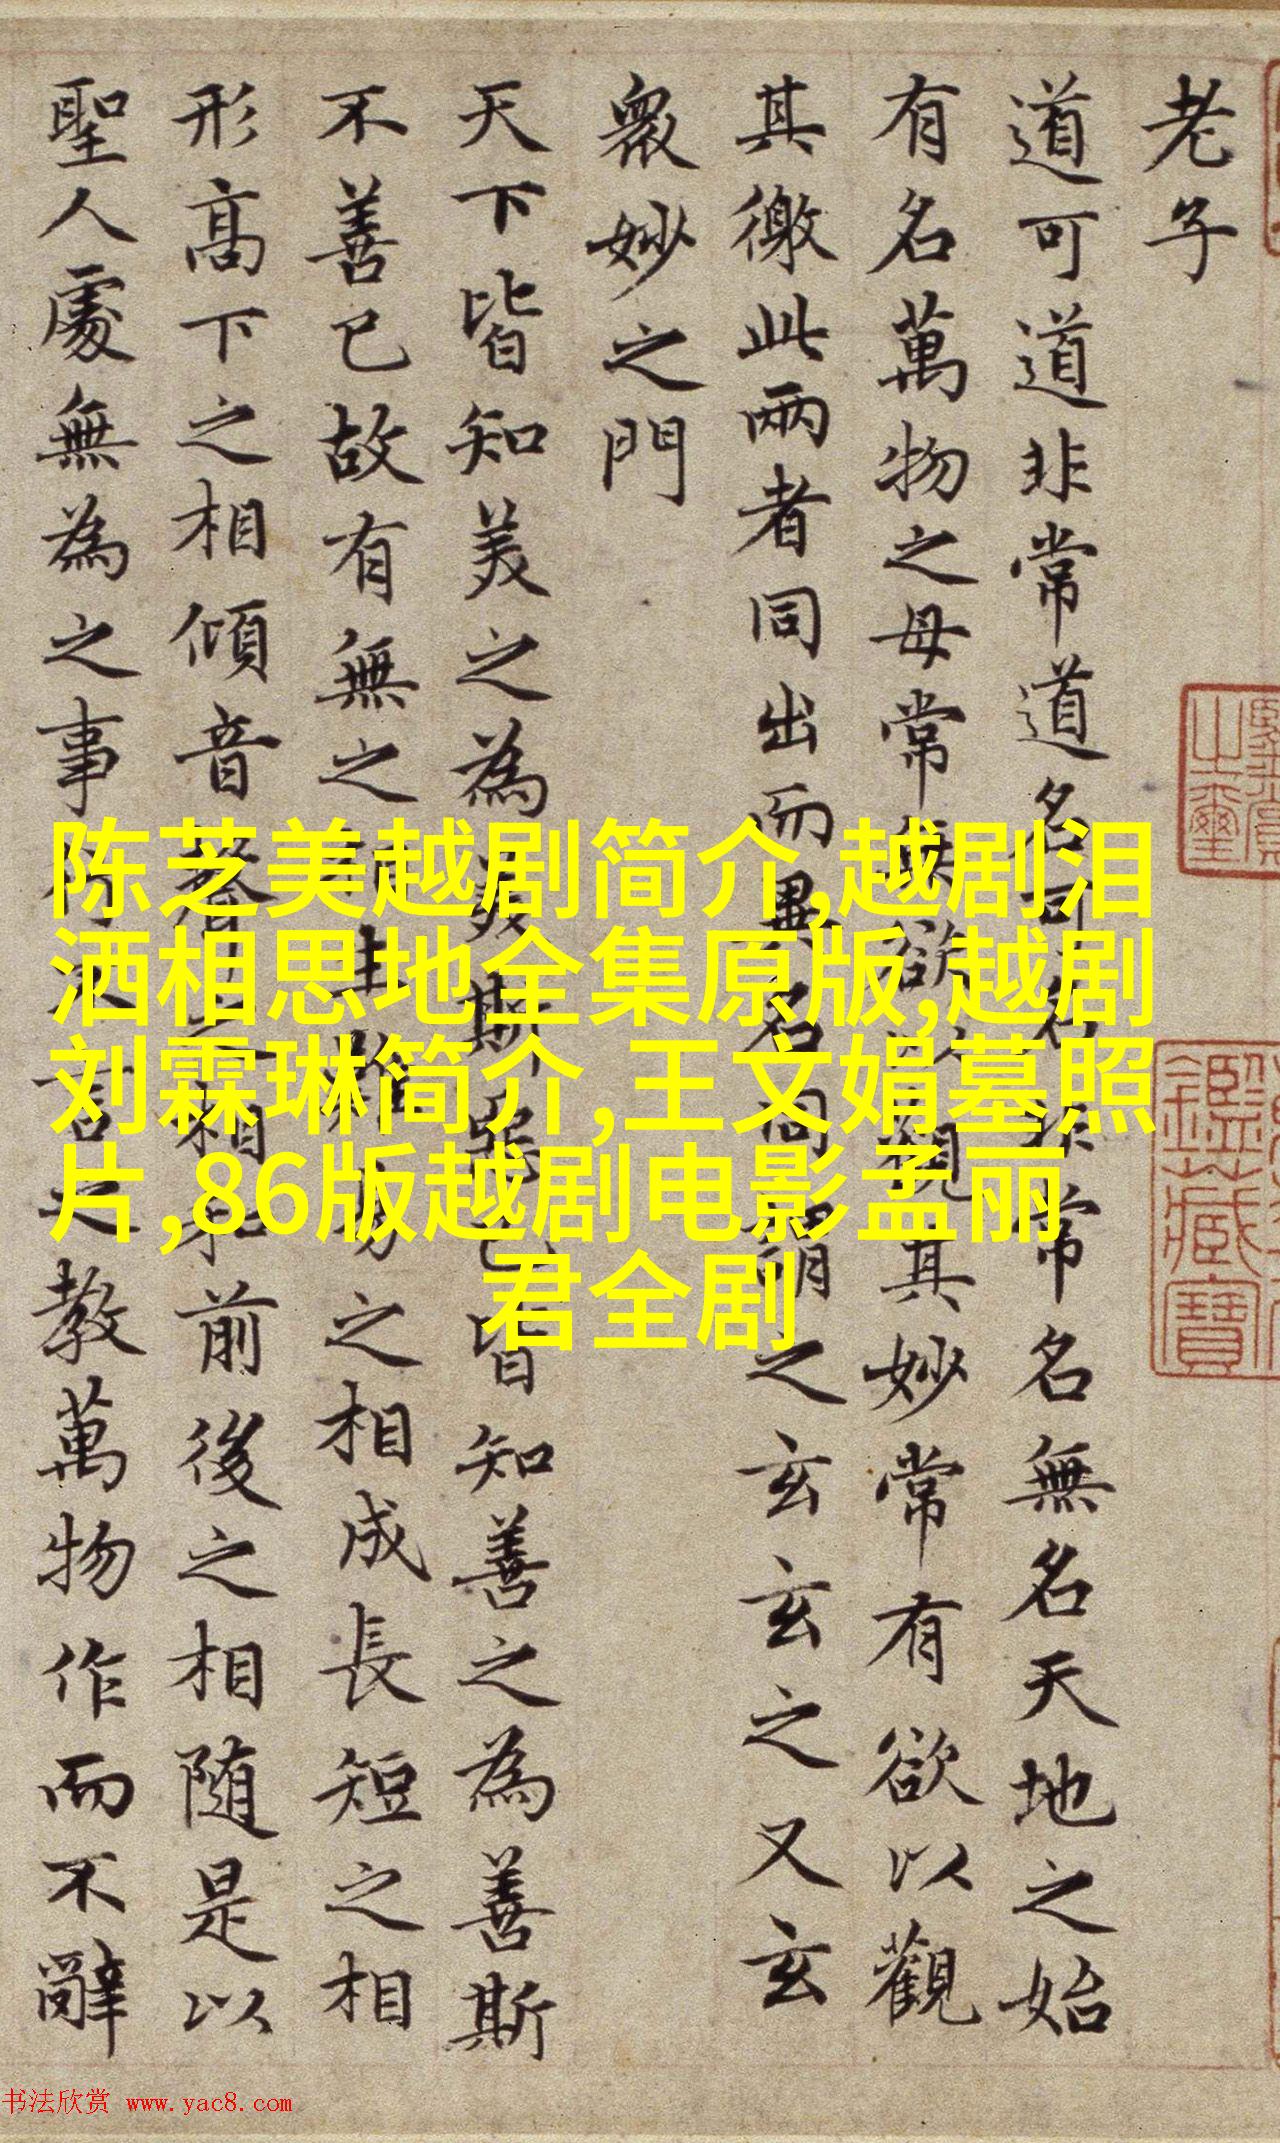 老子
道可道非常道名可名非常名無名天地之始
有名萬物之母常無欲以觀其妙常有欲以觀
其徼此兩者同出而異名同謂之玄玄之又玄
衆妙之門
天下皆知美之為美斯惡已皆知善之為善斯
不善已故有無之相生難易之相成長短之相
形高下之相傾音聲之相和前後之相随是以
聖人處無為之事行不言之教萬物作而不辭
陈芝美越剧简介,越剧泪
洒相思地全集原版,越剧
刘霖琳简介,王文娟墓照
片,86版越剧电影孟丽
君全剧
鑑藏寶
书法欣赏 www.yac8.com